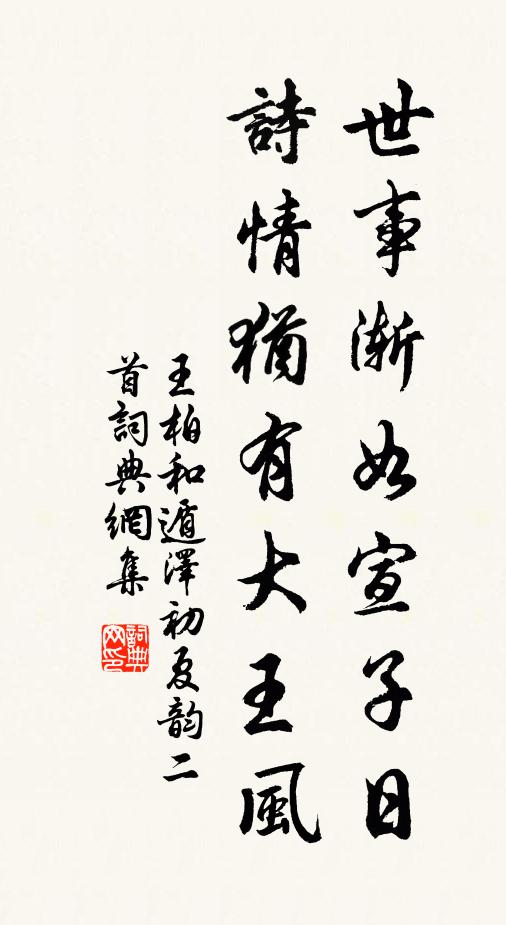 世事漸如宣子日
詩情猶有大王風
王柏和遁澤初夏韵二
首詞典網集
詞典
网印